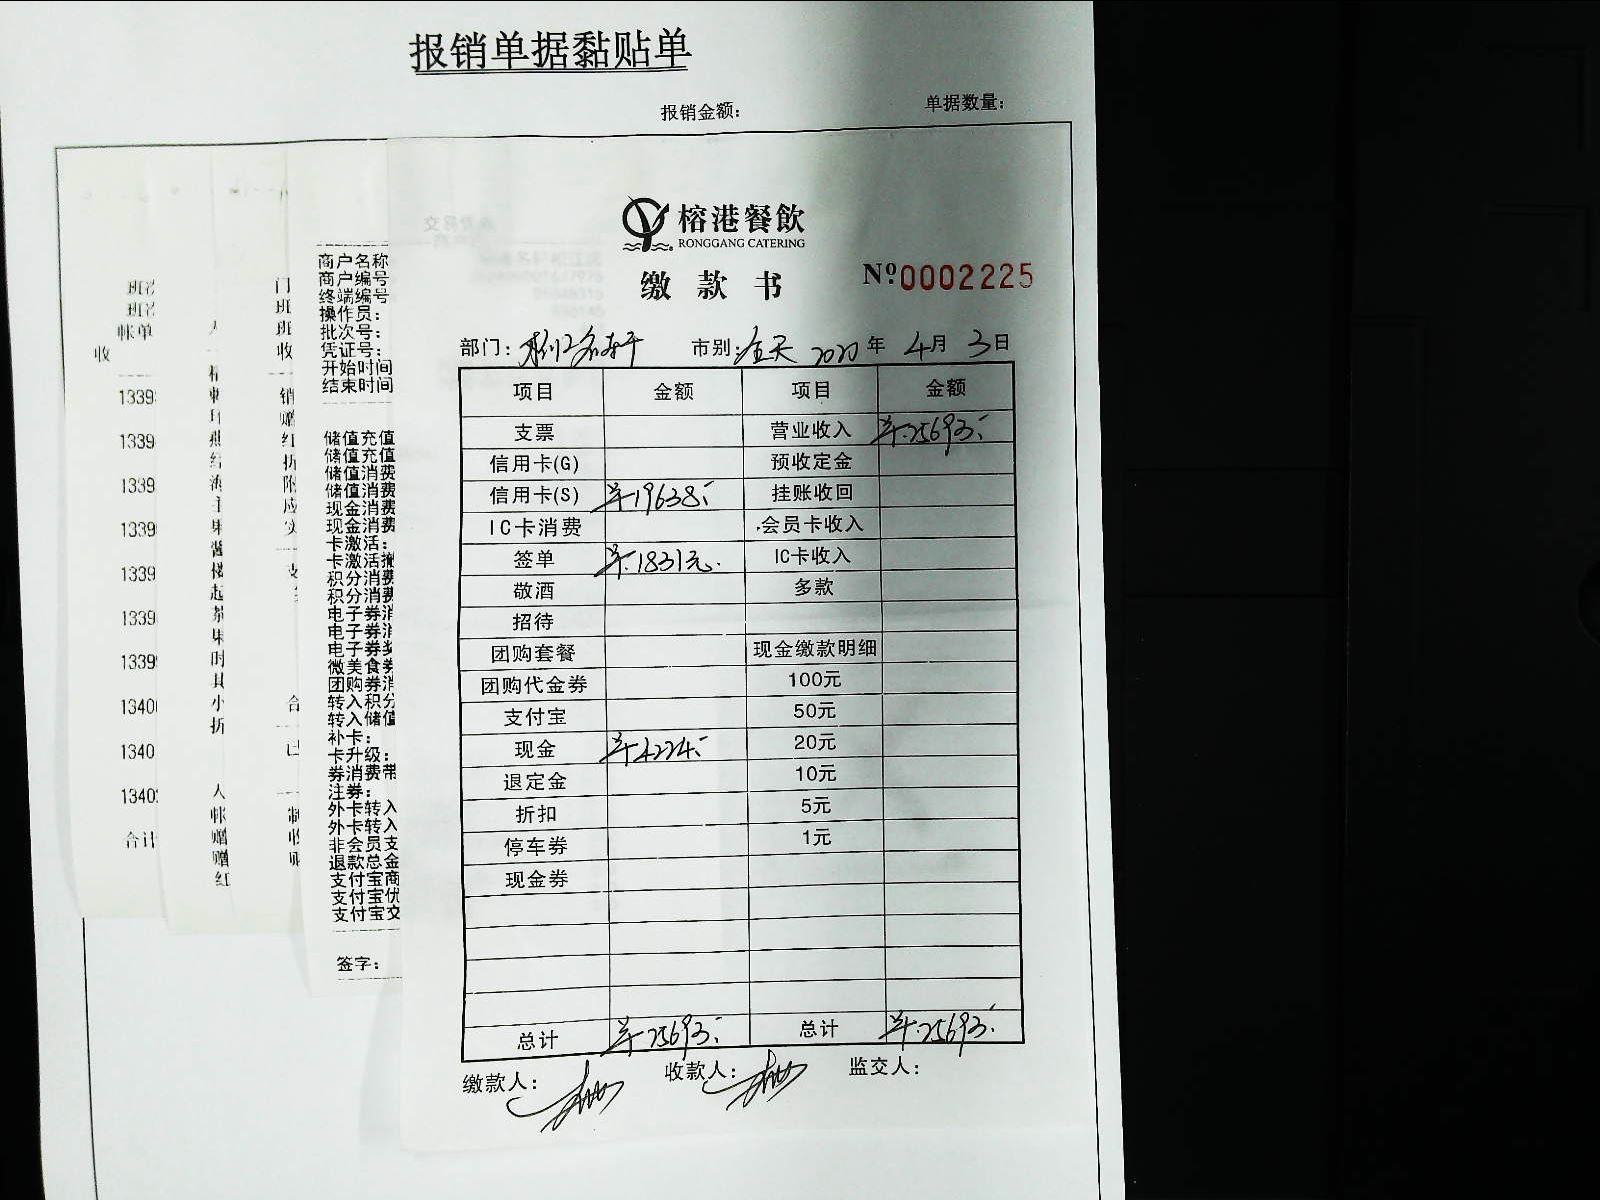 报销单据黏贴单
报销金额：
单据数量：
榕港餐飲
RONGGANG CATERING
缴款书
Nº0002225
部门：
市别：全天 2020年4月3日
项目 金额 项目 金额
支票 营业收入 ¥:25693.
信用卡(G) 预收定金
信用卡(S) ¥19638. 挂账收回
IC卡消费 会员卡收入
签单 ¥:1831元. IC卡收入
敬酒 多款
招待
团购套餐 现金缴款明细
团购代金券 100元
支付宝 50元
现金 ¥4224. 20元
退定金 10元
折扣 5元
停车券 1元
现金券
总计 ¥:25693. 总计 ¥:25693.
缴款人：
收款人：
监交人：
商户名称
商户编号
终端编号
操作员：
批次号：
凭证号：
开始时间
结束时间
储值充值
储值充值
储值消费
储值消费
现金消费
现金消费
卡激活：
卡激活
积分消费
积分消费
电子券消
电子券消
电子券
微美食券
团购券消
转入积分
转入储值
补卡：
卡升级：
券消费带
注券：
外卡转入
外卡转入
非会员支
退款总金
支付宝商
支付宝优
支付宝交
签字：
门
班
班
收
销
赠
红
折
附
应
实
支
合
已
制
收
人
折
人
帐
赠
赠
红
帐单
收
1339
1339
1339
1339
1339
1339
1339
1340
1340
1340
合计